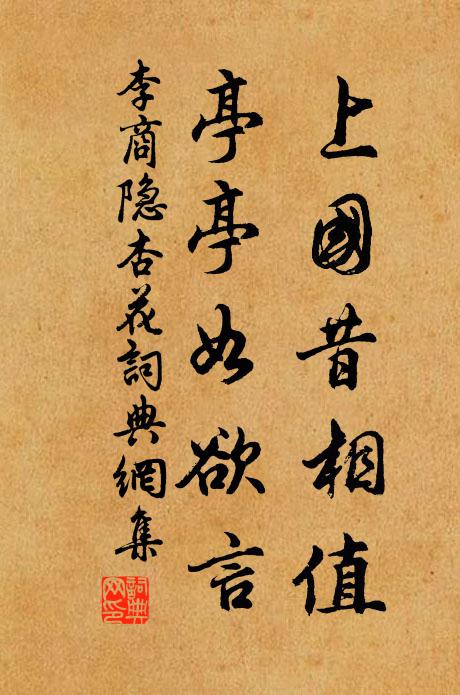 上國昔相值
亭亭如欲言
李商隐杏花詞典網集
詞典網印